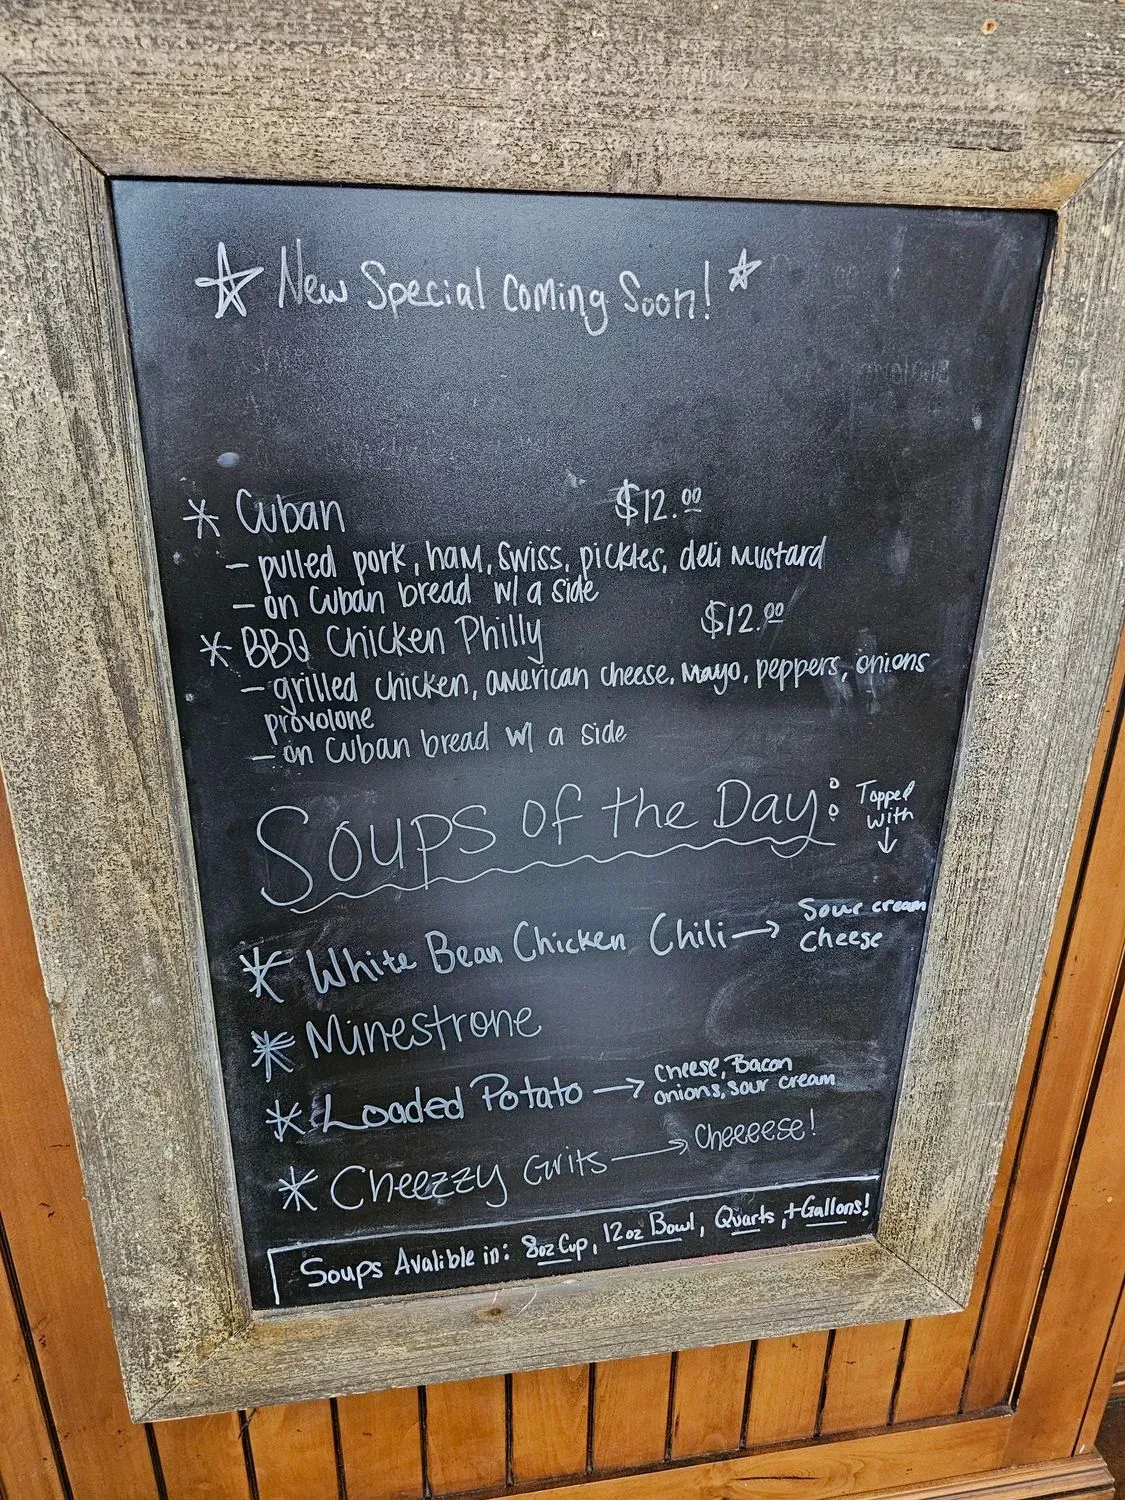 ☆ New Special Coming Soon! ☆
* Cuban $12.00
- pulled pork, ham, swiss, pickles, deli mustard
- on Cuban bread w/ a side
* BBQ Chicken Philly $12.00
- grilled chicken, american cheese, mayo, peppers, onions
provolone
- on Cuban bread w/ a side
Soups of the Day:
Topped
with
↓
* White Bean Chicken Chili → Sour cream
Cheese
* Minestrone
* Loaded Potato → Cheese, Bacon
onions, sour cream
* Cheezzy Grits → Cheeeese!
Soups Avalible in: 8oz Cup, 12oz Bowl, Quarts, + Gallons!